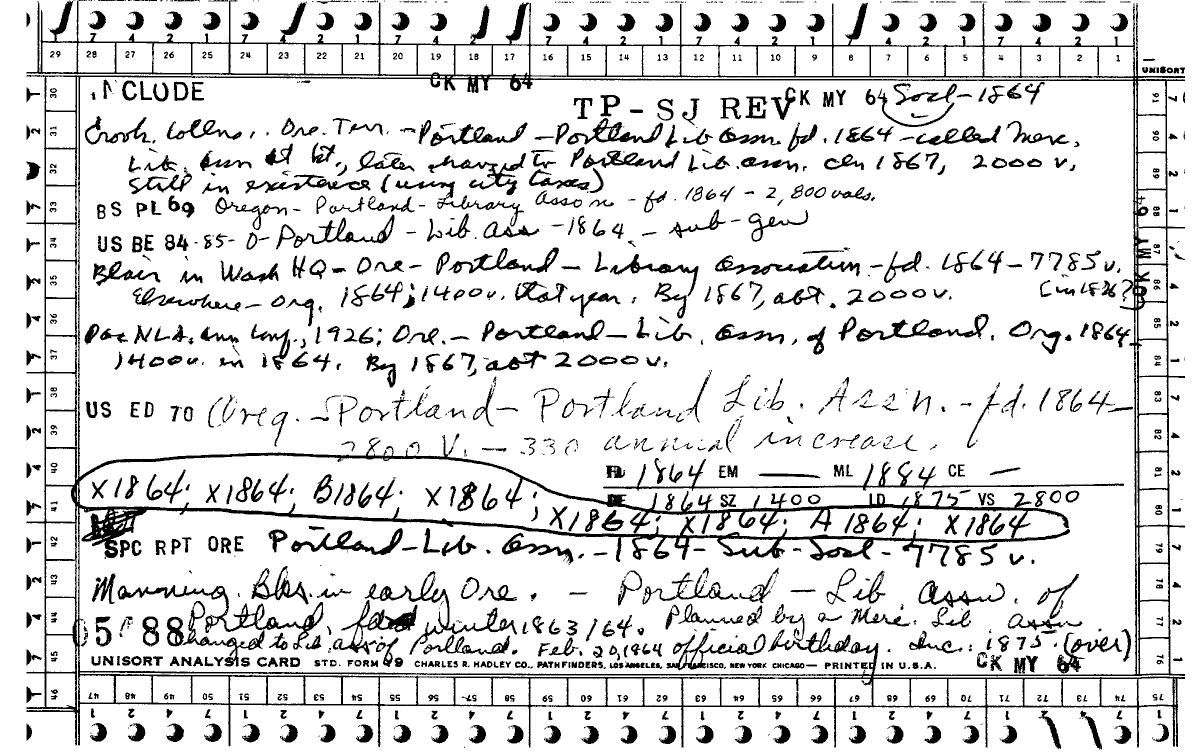 7 4 2 1 7 4 2 1 7 4 2 1 7 4 2 1 7 4 2 1 7 4 2 1 7 4 2 1
29 28 27 26 25 24 23 22 21 20 19 18 17 16 15 14 13 12 11 10 9 8 7 6 5 4 3 2 1
UNISORT
INCLUDE CK MY 64 TP-SJ REV CK MY 64 Socl-1864
Crook. Collns.. Ore. Terr. - Portland - Portland Lib Assn fd. 1864 - called Merc.
Lib. Assn at 1st, later changed to Portland Lib. assn. cln 1867, 2000 v.
Still in existence (using city taxes)
BS PL 69 Oregon - Portland - Library Asso'n - fd. 1864 - 2,800 vals.
US BE 84-85-0-Portland - Lib. Ass - 1864 - sub-gen
Blair in Wash HQ - Ore - Portland - Library Association - fd. 1864 - 7785 v.
Elsewhere - org. 1864; 1400 v. that year. By 1867, abt. 2000 v. (in 1836?)
Pac NLA. Ann Conf., 1926; Ore. - Portland - Lib. Assn. of Portland. Org. 1864
1400 v. in 1864. By 1867, abt 2000 v.
US ED 70 Oreg. - Portland - Portland Lib. Ass'n. - fd. 1864 -
2800 V. - 330 annual increase.
FD 1864 EM — ML 1884 CE —
X1864; X1864; B1864; X1864; DE 1864 SZ 1400 LD 1875 VS 2800
X1864; X1864; A 1864; X1864
SPC RPT ORE Portland - Lib. Assn. - 1864 - Sub-Socl - 7785 v.
Manning. Bks. in early Ore. - Portland - Lib Assn. of
Portland, fd winter 1863/64. Planned by a Merc. Lib assn
05 88 changed to Lib. ass of Portland. Feb. 20, 1864 official birthday. Inc. 1875. (over)
UNISORT ANALYSIS CARD STD. FORM 49 CHARLES R. HADLEY CO., PATHFINDERS, LOS ANGELES, SAN FRANCISCO, NEW YORK CHICAGO — PRINTED IN U.S.A. CK MY 64
47 48 49 50 51 52 53 54 55 56 57 58 59 60 61 62 63 64 65 66 67 68 69 70 71 72 73 74 75
1 2 4 7 1 2 4 7 1 2 4 7 1 2 4 7 1 2 4 7 1 2 4 7 1 2 4 7 1